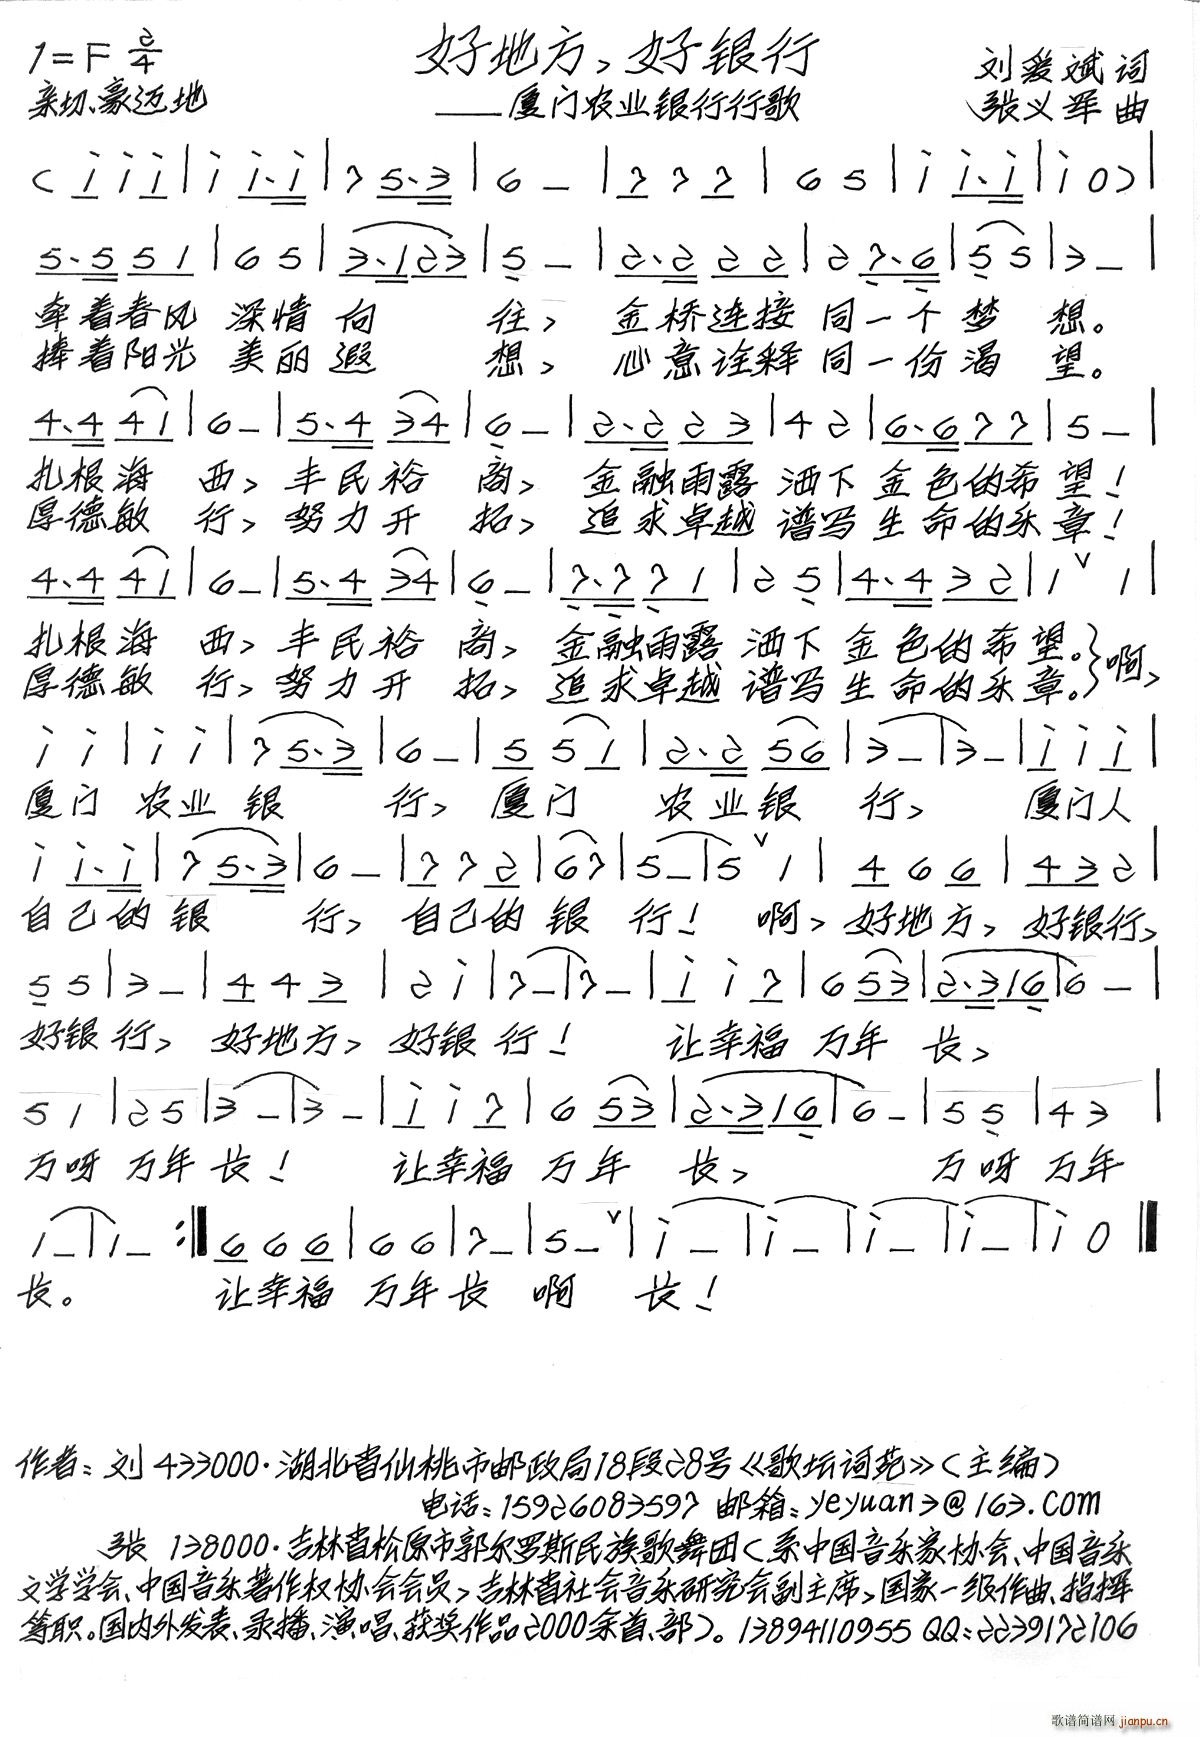 1=F 2/4
好地方，好银行
刘爱斌 词
亲切、豪迈地
——厦门农业银行行歌
张义军 曲
( i i i | i i. i | 7 5. 3 | 6 — | 7 7 7 | 6 5 | i i. i | i 0 ) |
5. 5 5 1 | 6 5 | 3. 1 2 3 | 5 — | 2. 2 2 2 | 2 7. 6 | 5 5 | 3 — |
牵着春风 深情向 往， 金桥连接 同一个梦 想。
捧着阳光 美丽遐 想， 心意诠释 同一份渴 望。
4. 4 4 1 | 6 — | 5. 4 3 4 | 6 — | 2. 2 2 3 | 4 2 | 6. 6 7 7 | 5 — |
扎根海 西， 丰民裕 商， 金融雨露 洒下 金色的希望！
厚德敏 行， 努力开 拓， 追求卓越 谱写 生命的乐章！
4. 4 4 1 | 6 — | 5. 4 3 4 | 6 — | 7. 7 7 1 | 2 5 | 4. 4 3 2 | 1 ∨ 1 |
扎根海 西， 丰民裕 商， 金融雨露 洒下 金色的希望。} 啊，
厚德敏 行， 努力开 拓， 追求卓越 谱写 生命的乐章。
i i | i i | 7 5. 3 | 6 — | 5 5 1 | 2. 2 5 6 | 3 — | 3 — | i i i |
厦门 农业 银 行， 厦门 农业银 行， 厦门人
i i. i | 7 5. 3 | 6 — | 7 7 2 | 6 7 | 5 — | 5 ∨ 1 | 4 6 6 | 4 3 2 |
自己的 银 行， 自己的 银 行！ 啊，好地方，好银行，
5 5 | 3 — | 4 4 3 | 2 i | 7 — | 7 — | i i 7 | 6 5 3 | 2. 3 1 6 | 6 — |
好银行， 好地方， 好银行！ 让幸福 万年 长，
5 1 | 2 5 | 3 — | 3 — | i i 7 | 6 5 3 | 2. 3 1 6 | 6 — | 5 5 | 4 3 |
万呀 万年 长！ 让幸福 万年 长， 万呀 万年
1 — | 1 — :‖ 6 6 6 | 6 6 | 7 — | 5 — ∨ | i — | i — | i — | i — | i 0 ‖
长。 让幸福 万年长 啊 长！
作者：刘 433000·湖北省仙桃市邮政局18段28号《歌坛词苑》（主编）
电话：15926083597 邮箱：yeyuan3@163.com
张 138000·吉林省松原市郭尔罗斯民族歌舞团（系中国音乐家协会、中国音乐
文学学会、中国音乐著作权协会会员，吉林省社会音乐研究会副主席，国家一级作曲、指挥
等职。国内外发表、录播、演唱、获奖作品2000余首、部）。13894110955 QQ：2239172106
歌谱简谱网
jianpu.cn